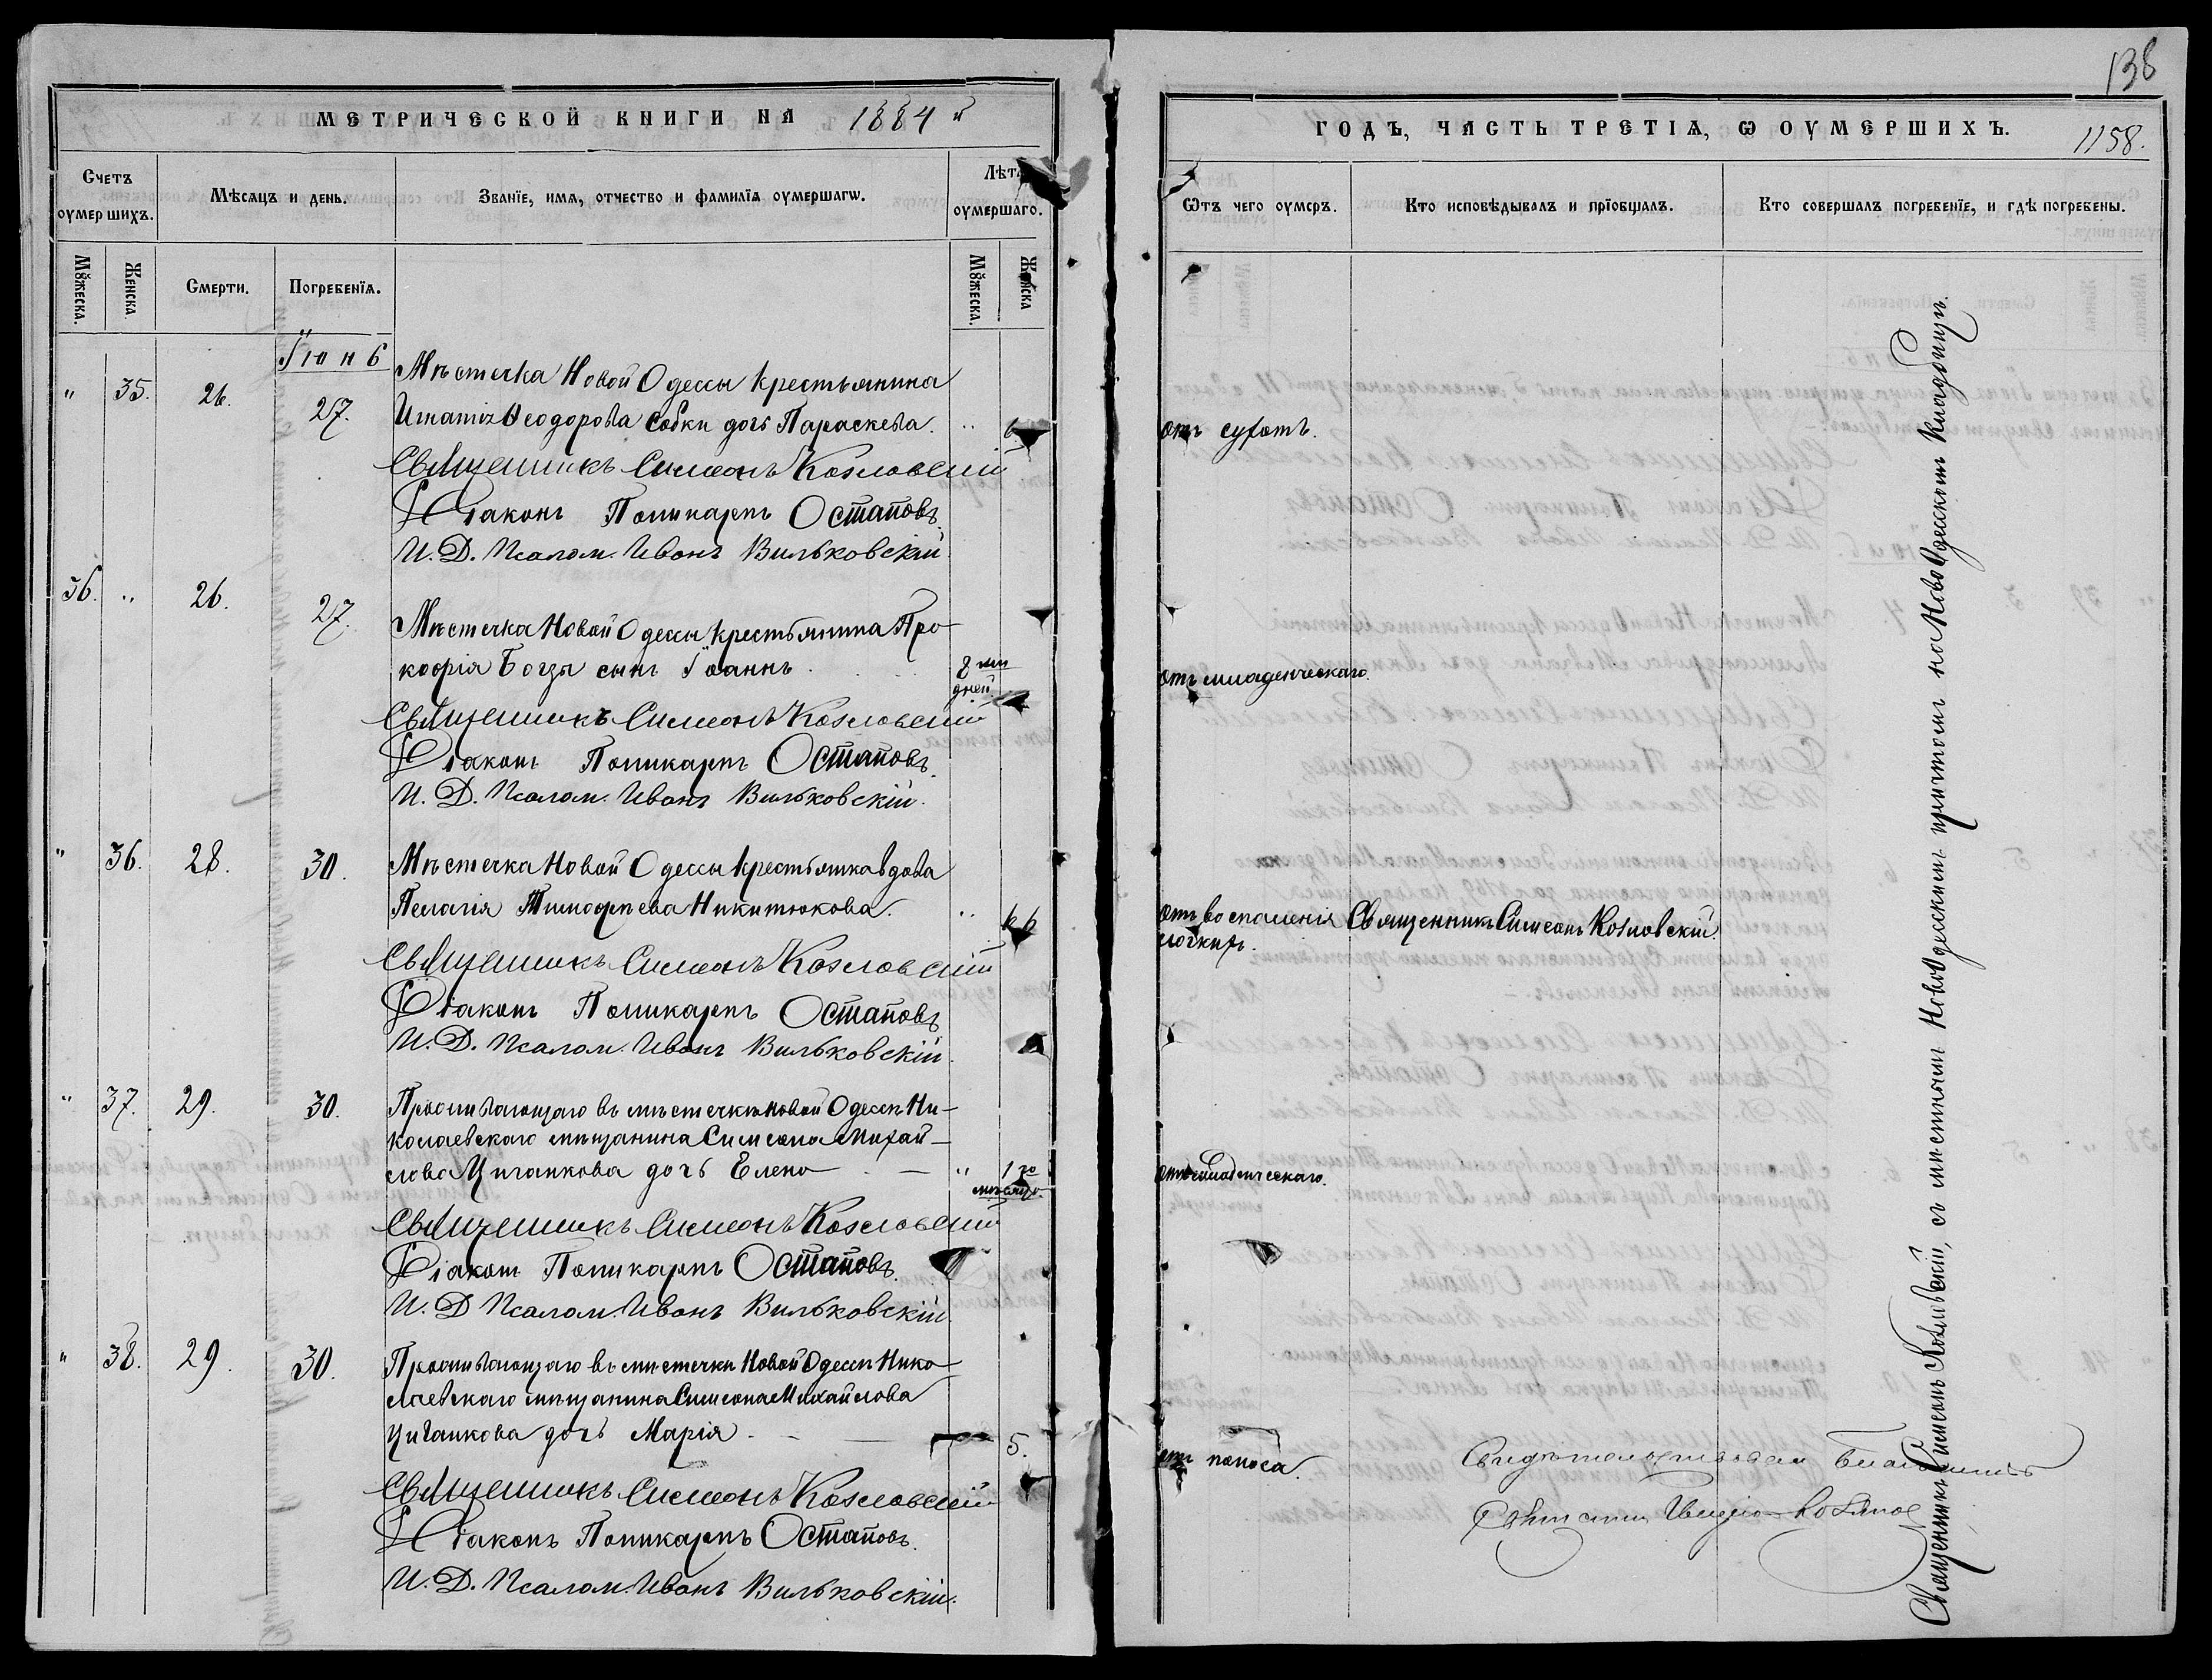 138
МЕТРИЧЕСКОЙ КНИГИ НА 1884 й
ГОДЪ, ЧАСТЬ ТРЕТІѦ, Ѡ ОУМЕРШИХЪ.
1158.
Счетъ оумершихъ.
Мѣсѧцъ и день.
Званїе, имѧ, отчество и фамилїѧ оумершагѡ.
Лѣта оумершаго.
Ѿтъ чего оумеръ.
Кто исповѣдывалъ и прїобщалъ.
Кто совершалъ погребенїе, и гдѣ погребены.
Мꙋжеска.
Женска.
Смерти.
Погребенїѧ.
Мꙋжеска.
Женска
Іюнь
" 35. 26. 27.
Мѣстечка Новой Одессы крестьянина
Игнатія Ѳеодорова Собки дочь Параскева. "
отъ сухотъ.
Священникъ Симеонъ Козловскій
Діаконъ Поликарпъ Остаповъ.
И. Д. Псалом. Иванъ Вильковскій
36. " 26. 27.
Мѣстечка Новой Одессы крестьянина Про-
кофія Богзы сынъ Іоаннъ. 8 ми дней.
отъ младенческаго.
Священникъ Симеонъ Козловскій
Діаконъ Поликарпъ Остаповъ.
И. Д. Псалом. Иванъ Вильковскій.
" 36. 28. 30.
Мѣстечка Новой Одессы крестьянка вдова
Пелагія Тимофѣева Никитюкова. " 66
отъ воспаленія легкихъ.
Священникъ Симеонъ Козловскій.
Священникъ Симеонъ Козловскій
Діаконъ Поликарпъ Остаповъ
И. Д. Псалом. Иванъ Вильковскій.
" 37. 29. 30.
Проживающаго въ мѣстечкѣ Новой Одессѣ Ни-
колаевскаго мѣщанина Симеона Михай-
лова Цыганкова дочь Елена - " 1 го мѣсяца.
отъ младенческаго.
Священникъ Симеонъ Козловскій
Діаконъ Поликарпъ Остаповъ.
И. Д Псалом. Иванъ Вильковскій.
" 38. 29. 30.
Проживающаго въ мѣстечки Новой Одессѣ Нико-
лаевскаго мѣщанина Симеона Михайлова
Цыганкова дочь Марія. - 5.
отъ поноса.
Священникъ Симеонъ Козловскій
Діаконъ Поликарпъ Остаповъ.
И. Д. Псалом. Иванъ Вильковскій.
Священникъ Симеонъ Козловскій, съ мѣстнымъ НовоОдесскимъ причтомъ на НовоОдесскомъ кладбищѣ.